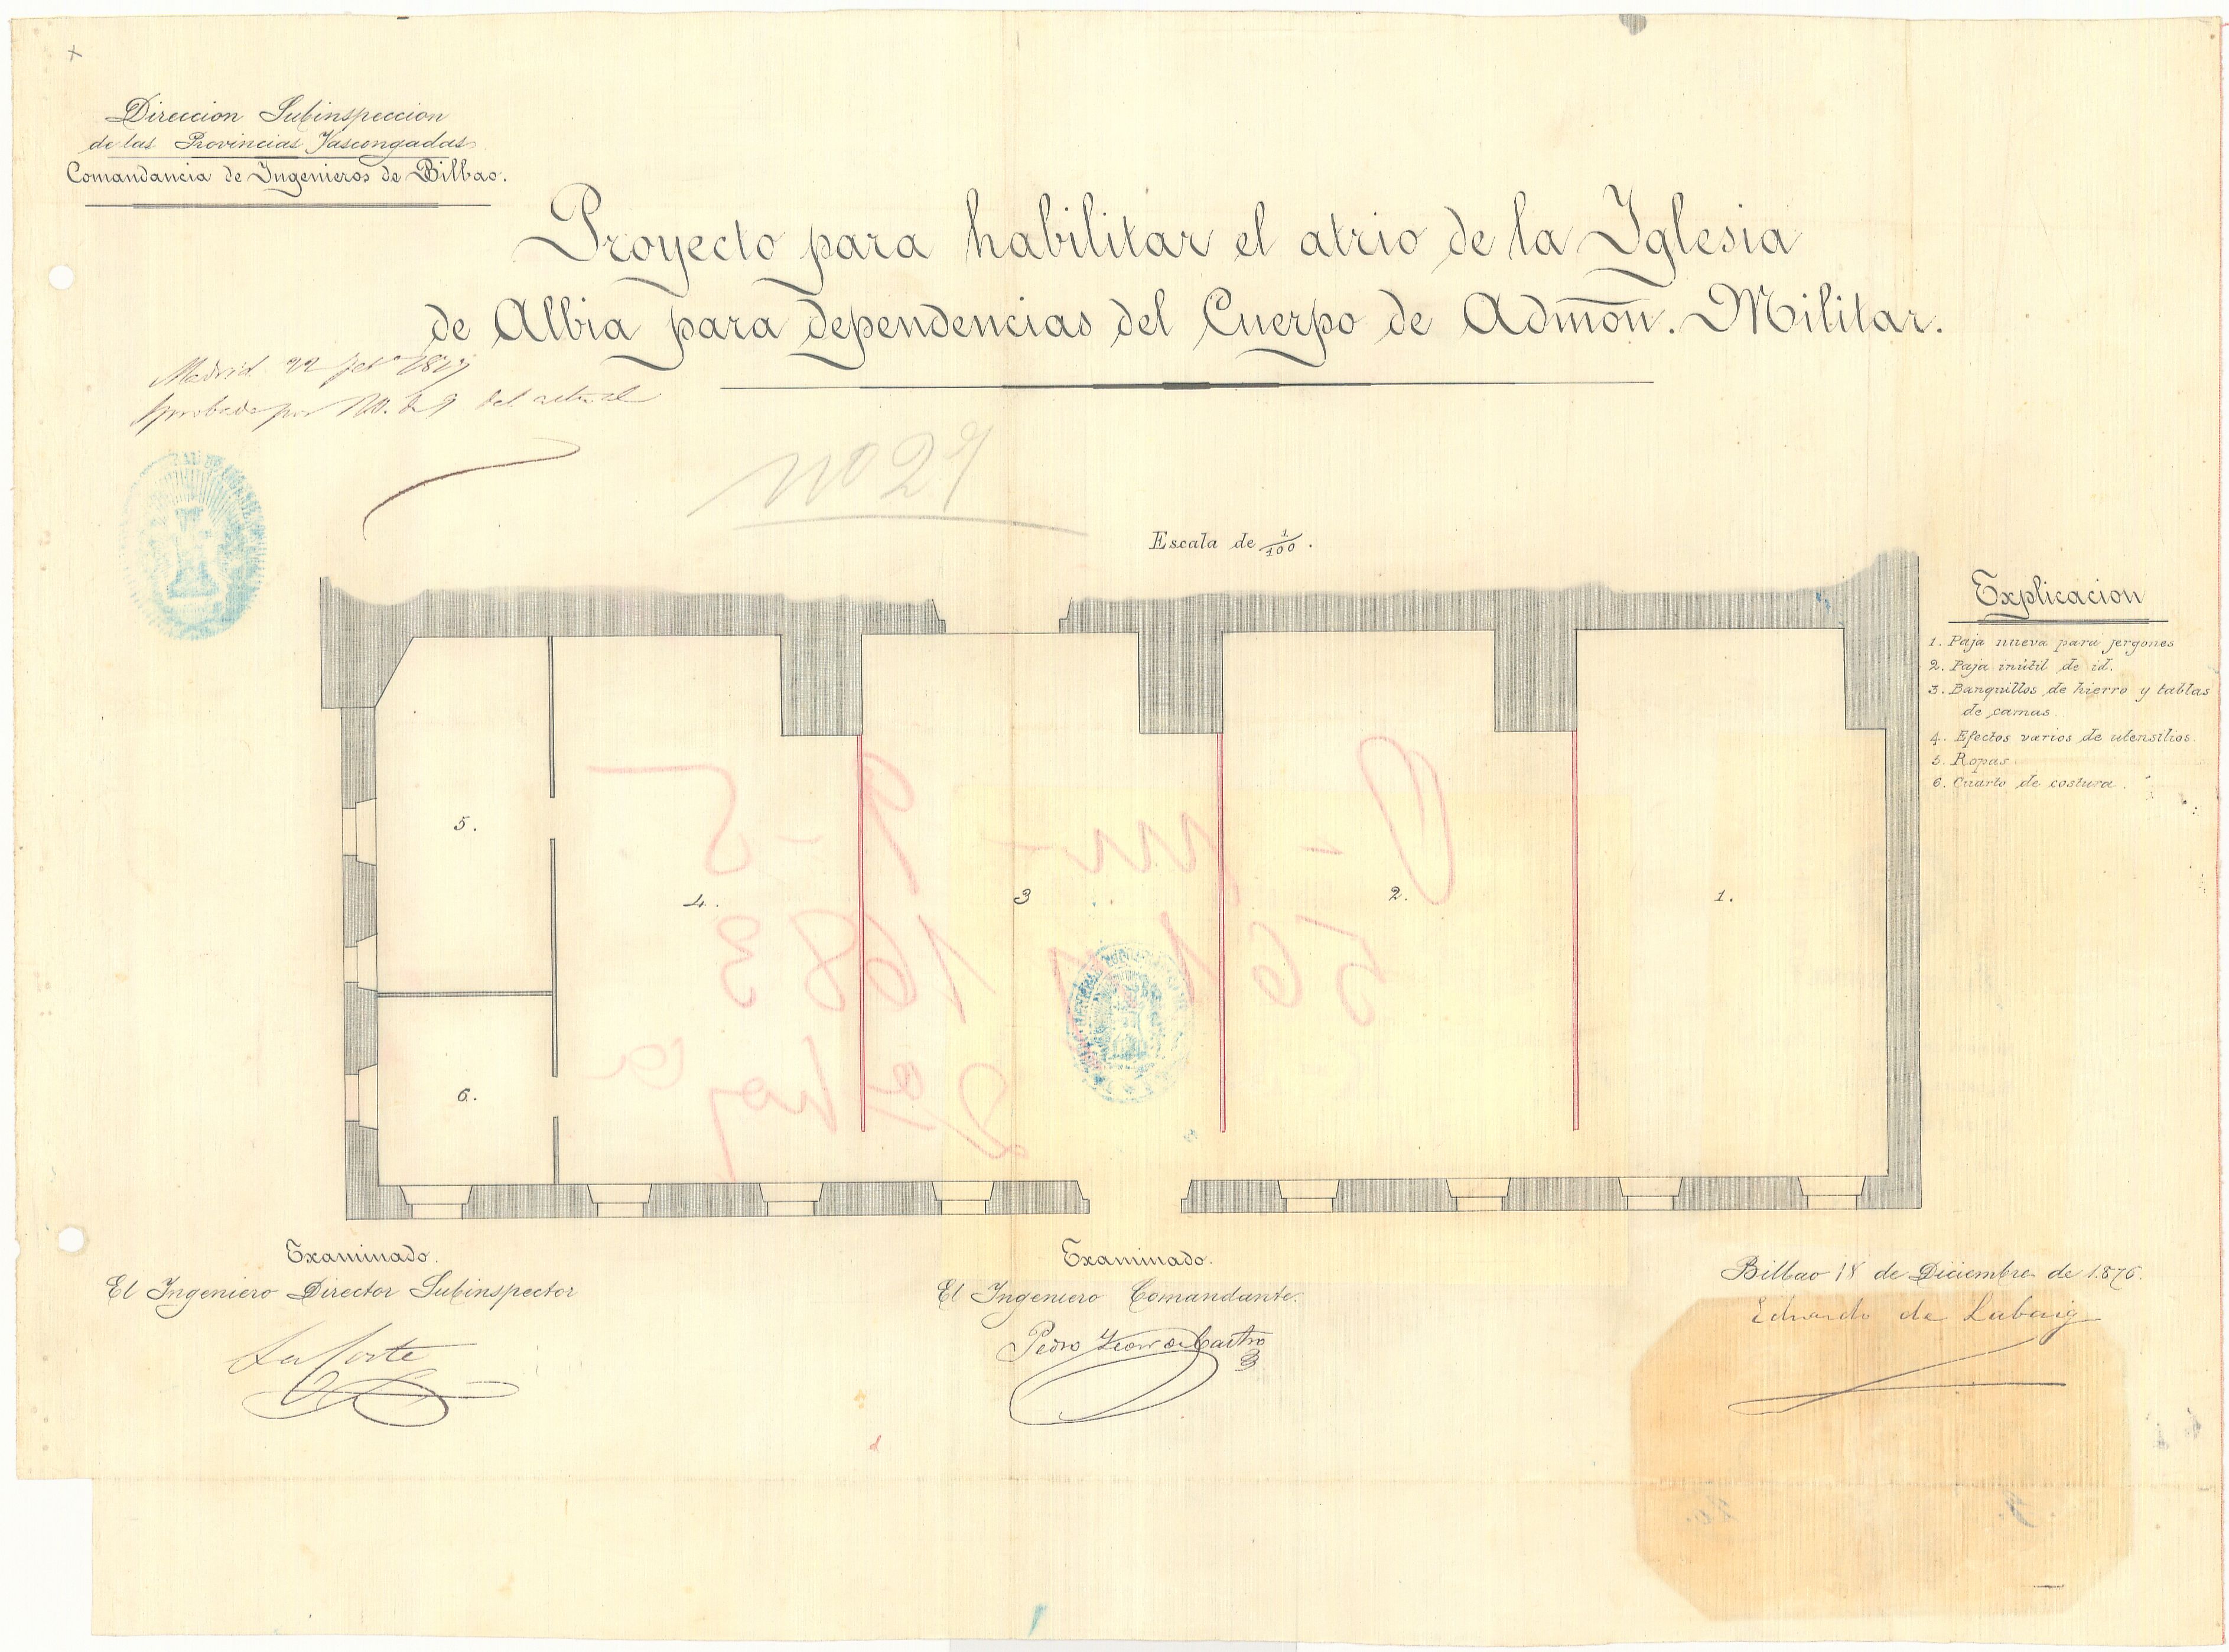 Direccion Subinspeccion
de las Provincias Vascongadas
Comandancia de Ingenieros de Bilbao.
Proyecto para habilitar el atrio de la Iglesia
de Albia para dependencias del Cuerpo de Admon. Militar.
Madrid 22 feb
Aprobado por
del actual
nº 27
Escala de 1/100.
Explicacion
1. Paja nueva para jergones
2. Paja inútil de id.
3. Banquillos de hierro y tablas
de camas.
4. Efectos varios de utensilios.
5. Ropas
6. Cuarto de costura.
5.
4.
3
2.
1.
6.
Examinado.
El Ingeniero Director Subinspector
Examinado.
El Ingeniero Comandante.
Pedro Leon de Castro
Bilbao 18 de Diciembre de 1.876.
Eduardo de Labaig